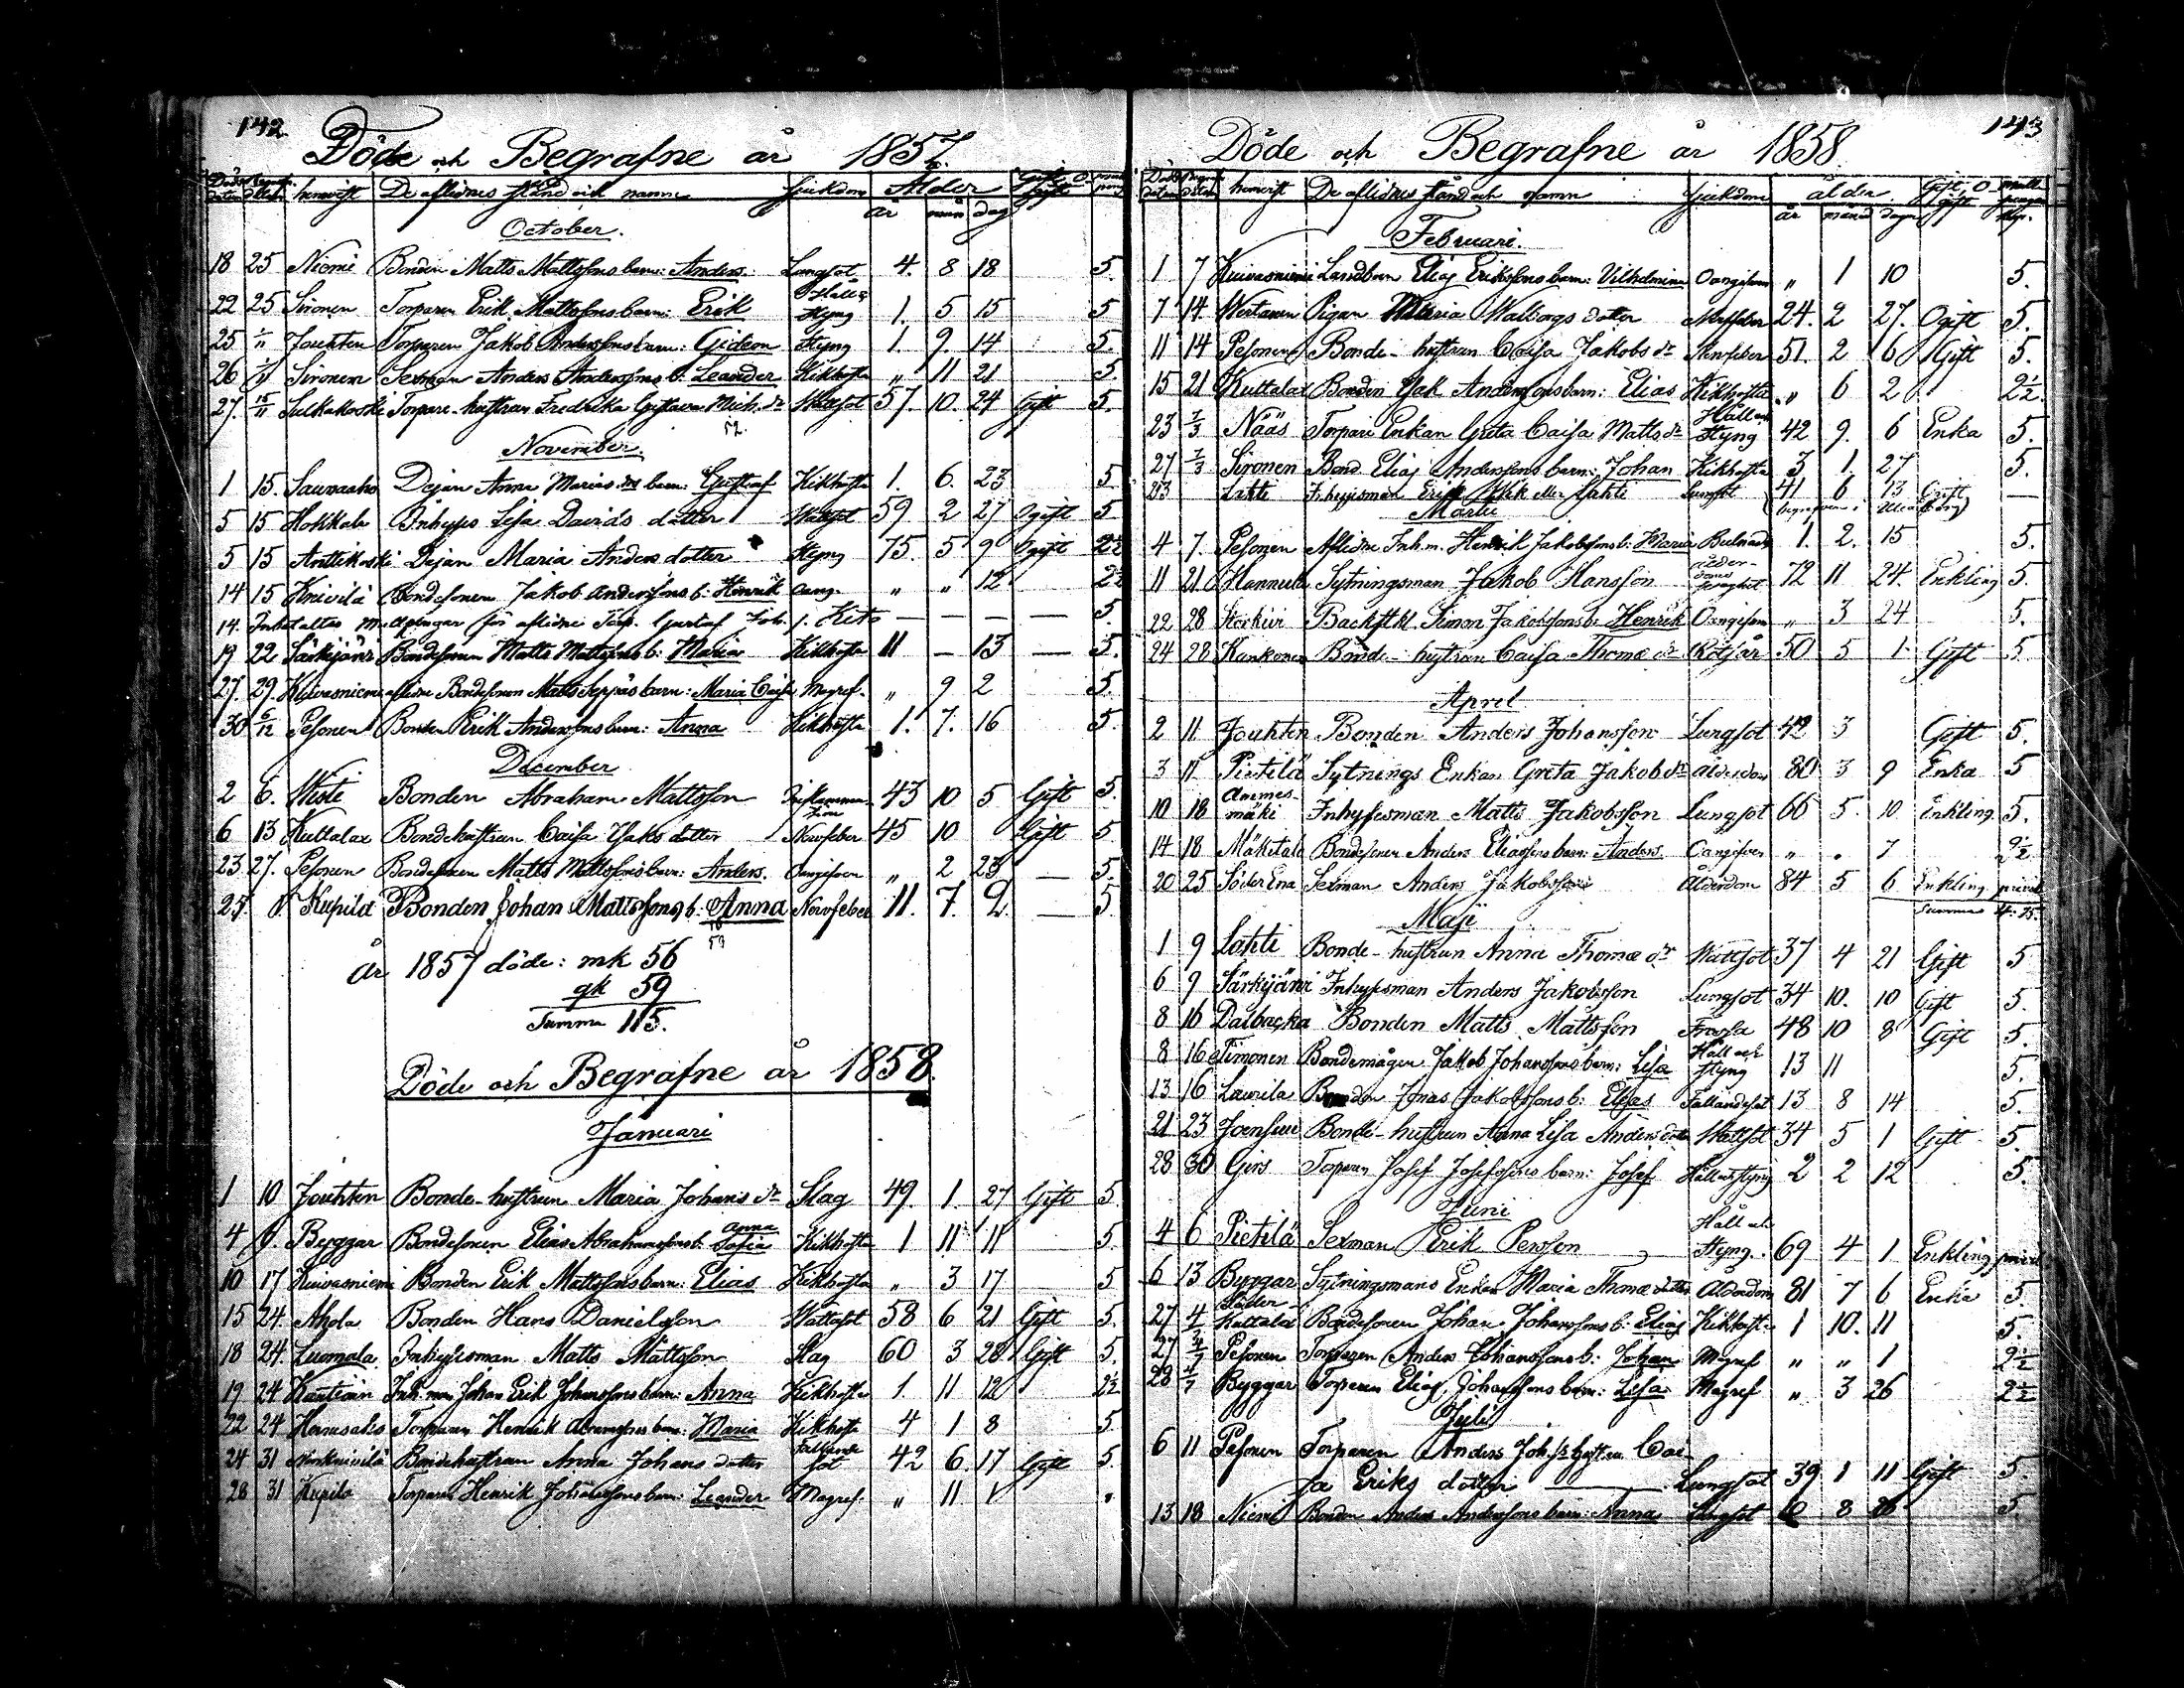 142
Döde och Begrafne år 1857.
hemvist De aflidnes stånd och namn Sjukdom Ålder
år mån dag
October.
18 25 Niemi Bonden Matts Mattssons barn: Anders. Lungsot 4. 8 18 5.
22 25 Sironen Torparen Erik Mattssons barn: Erik Håll & Styng 1. 5 15 5
25 1/11 Jouhten Torparen Jakob Anderssons barn: Gideon Styng 1. 9. 14 5.
26 1/11 Sironen Sexman Anders Anderssons b: Leander Kikhosta „ 11 21 5.
27. 15/11 Sulkakoski Torpare-hustrun Fredrika Gustava Mich. dr Wattsot 57. 10. 24 Gift 5.
52.
November.
1 15. Sauvaaho Dejan Anna Marias barn: Gustaf Kikhosta 1. 6. 23 5
5 15 Hokkala Inhyses Lisa Davids dotter Wattsot 59 2 27 Ogift 5
5 15 Anttikoski Dejan Maria Anders dotter Styng 75. 5 9 Ogift 2½
14 15 Knivilä Bondesonen Jakob Anderssons b: Henrik „ „ 12 2½
14. Inbetaltes för aflidne Torp. Gustaf — — — — 5.
19 22 Särkijärvi Bondesonen Matts Mattssons b: Maria Kikhosta 11 — 13 — 5.
27. 29. Kuivasniemi aflidne Bondesonen Matts Seppäs barn: Maria Caisa Magref. „ 9 2 5.
30 6/12 Pesonen Bonden Erik Anderssons barn: Anna Kikhosta 1. 7. 16 5.
December
2 6. Wisti Bonden Abraham Mattsson Inflammation 43 10 5 Gift 5.
6 13 Kuttalax Bondehustrun Caisa Isaks dotter Nervfeber 45 10 Gift 5
23 27. Pesonen Bondesonen Matts Mattssons barn: Anders. Oangifven „ 2 23 — 5.
25 Kupila Bonden Johan Mattssons b: Anna Nervfeber 11. 7. 2. — 5
År 1857 döde: mk 56
qk 59
Summa 115.
Döde och Begrafne år 1858.
Januari
1 10 Jouhten Bonde-hustrun Maria Johans dr Slag 49. 1. 27 Gift 5.
4 Byggar Bondesonen Elias Abrahamssons b. Anna Sofia Kikhosta 1 11 11 5.
10 17 Kuivasniemi Bonden Erik Mattssons barn: Elias Kikhosta „ 3 17 5
15 24. Ahola Bonden Hans Danielsson Wattsot 58 6 21 Gift 5.
18 24. Luomala Inhysesman Matts Mattsson Slag 60 3 28 Gift 5.
19 24 Inh. man Johan Erik Johanssons barn: Anna Kikhosta 1. 11 12 2½
22 24 Torparen Henrik barn: Maria Kikhosta 4 1 8 5
24 31 Bondehustrun Anna Johans dotter Fallandesot 42 6. 17 Gift 5.
28 31 Kupila Torparen Henrik Johanssons barn: Leander Magref. „ 11 1
143
Döde och Begrafne år 1858
hemvist De aflidnes stånd och namn Sjukdom ålder
år månad dagar
Februari.
1 7 Kuivasniemi Landbon Elias Erikssons barn: Vilhelmina Oangifven „ 1 10 5.
7 14. Wertanen Pigan Maria Walborgs dotter Nervfeber 24. 2 27. Ogift 5.
11 14 Pesonen Bonde-hustrun Caisa Jakobs dr Nervfeber 51. 2 6 Gift 5.
15 21 Kuttalax Bonden Isak Anderssons barn: Elias Kikhosta „ 6 2 2½.
23 7/3 Nääs Torpare Enkan Greta Caisa Matts dr Håll och Styng 42 9. 6 Enka 5.
27 7/3 Sironen Bond. Elias Anderssons barn: Johan Kikhosta 3 1. 27 5.
Lahti Inhysesman Erik Lahti Lungsot 41 6 13 Ogift —
Martii
4 7. Pesonen Aflidne Inh. m. Henrik Jakobssons b: Maria Bulnad 1. 2. 15 5.
11 21 Hannula Sytningsman Jakob Hansson 72 11 24. Enkling 5.
22 28 Backst.kl. Simon Jakobssons b: Henrik Oangifven „ 3 24 5.
24 28 Kankonen Bonde-hustrun Caisa Thomæ dr Rötsår 50 5 1 Gift 5
April
2 11 Jouhten Bonden Anders Johansson Lungsot 42 3 Gift 5.
3 11. Pietilä Sytnings Enkan Greta Jakobs dr ålderdom 80 3 9 Enka 5
10 18 Ammesmäki Inhysesman Matts Jakobsson Lungsot 66 5. 10 Enkling. 5.
14 18 Mäkitalo Bondesonen Anders Eliassons barn: Anders. Oangifven „ „ 7 2½
20 25 Söder Ena Sexman Anders Jakobsson Ålderdom 84 5 6 Enkling
Maji
1 9 Lahti Bonde-hustrun Anna Thomæ dr Wattsot 37 4 21 Gift 5
6 9 Särkijärvi Inhysesman Anders Jakobsson Lungsot 34 10. 10 Gift 5.
8 16 Dalbacka Bonden Matts Mattsson Frossa 48 10 8 Gift 5.
8 16 Timonen Bondemågen Jakob Johanssons barn: Lisa Håll och Styng 13 11 5.
13 16 Laurila Bonden Jonas Jakobssons b: Elias Fallandesot 13 8 14 5.
21 23 Joensuu Bonde-hustrun Anna Lisa Anders dotter Wattsot 34 5 1 Gift 5
28 30 Girs Torparen Josef Josefssons barn: Josef Håll och Styng 2 2 12 5.
Juni
4 6 Pietilä Sexman Erik Persson Håll och Styng. 69 4 1 Enkling
6 13 Byggar Sytningsmans Enkan Maria Thomæ dotter Ålderdom 81 7 6 Enka 5.
27 4/7 Söder Kuttalax Bondesonen Johan Johanssons b: Elias Kikhosta 1 10. 11 5.
27 4/7 Pesonen Torparen Anders Johanssons b: Johan Magref „ „ 1 2½
28 4/7 Byggar Torparen Elias Johanssons barn: Lisa Magref „ 3 26 2½
Juli
6 11 Pesonen Torparen Anders Johss hustru Cai-
sa Eriks dotter Lungsot 39 1 11 Gift 5.
13 18 Niemi Bonden Anders Anderssons barn: Anna Lungsot 8 26 5.